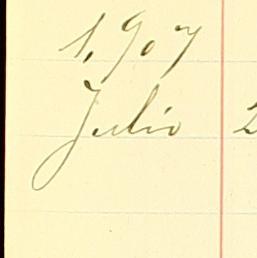 1,907
Julio 2